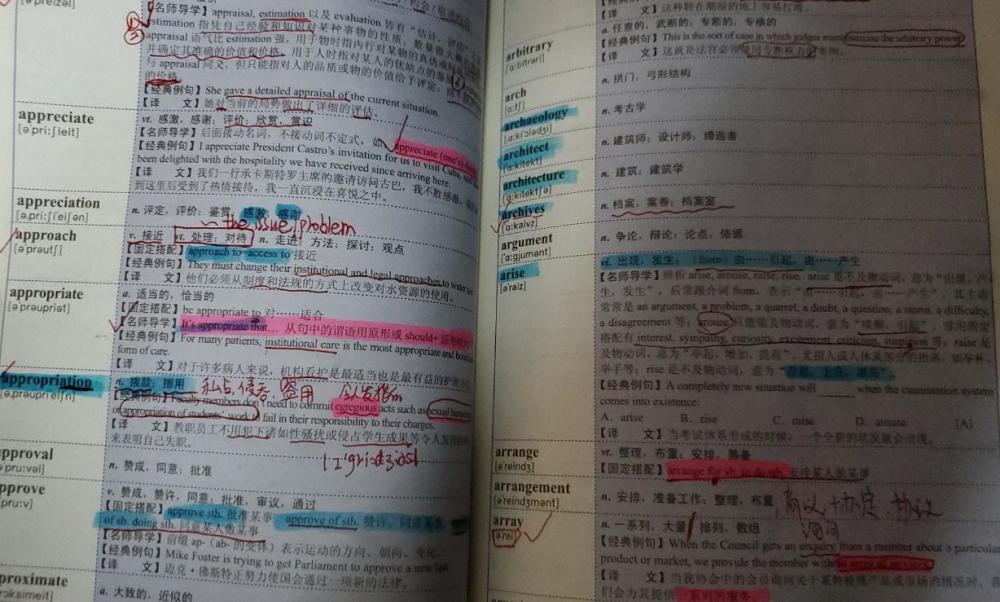 【名师导学】appraisal, estimation 以及 evaluation 皆有“估计，评估”
estimation 指凭自己经验和知识对某种事物的性质、数量做大
appraisal 语气比 estimation 强，用于物时指内行对某物的真伪
并确定其准确的价值或价格。用于人时指对某人的优缺点的鉴
与 appraisal 同义，但只能指对人的品质或物的价值给予评定，
的价格。
【经典例句】She gave a detailed appraisal of the current situation.
【译 文】她对当前的局势做出了详细的评估
appreciate
[ə'pri:ʃieit]
vt. 感激，感谢；评价；欣赏，赏识
【名师导学】后面接动名词，不接动词不定式，如 appreciate (one's)
【经典例句】I appreciate President Castro's invitation for us to visit Cuba, and
been delighted with the hospitality we have received since arriving here.
【译 文】我们一行承卡斯特罗主席的邀请访问古巴，我不胜感激，
到这里后受到了热情接待，我一直沉浸在喜悦之中。
appreciation
[ə,pri:ʃi'eiʃən]
n. 评定，评价；鉴赏；感激，感谢
the issue/problem
approach
[ə'prəutʃ]
v. 接近 vt. 处理；对待 n. 走进；方法；探讨；观点
【固定搭配】approach to=access to 接近
【经典例句】They must change their institutional and legal approaches to water
【译 文】他们必须从制度和法规的方式上改变对水资源的使用。
appropriate
[ə'prəupriət]
a. 适当的，恰当的
【固定搭配】be appropriate to 对……适合
【名师导学】It's appropriate that… 从句中的谓语用原形或 should+
【经典例句】For many patients, institutional care is the most appropriate and
form of care.
【译 文】对于许多病人来说，机构看护是最适当也是最有益的护
appropriation
n. 拨款；挪用
私占，侵吞，盗用
【经典例句】Faculty members don't need to commit egregious acts such as sexual
or appropriation of students' work to fail in their responsibility to their charges.
【译 文】教职员工不用犯下诸如性骚扰或侵占学生成果等令人发
来表明自己失职。
approval
n. 赞成，同意；批准
approve
v. 赞成，赞许，同意；批准，审议，通过
【固定搭配】approve sth. 批准某事 approve of sth. 赞许，同意某事
of sb. doing sth. 同意某人做某事
【名师导学】前缀 ap- (ab- 的变体) 表示运动的方向、朝向、变化
【经典例句】Mike Foster is trying to get Parliament to approve a new
【译 文】迈克·佛斯特正努力使国会通过一项新的法律。
approximate
a. 大致的，近似的
arbitrary
['ɑ:bitrəri]
a. 任意的，武断的；专断的，专横的
【经典例句】This is the sort of case in which judges must exercise the arbitrary power
arch
[ɑ:tʃ]
n. 拱门，弓形结构
archaeology
[,ɑ:ki'ɔlədʒi]
n. 考古学
architect
['ɑ:kitekt]
n. 建筑师；设计师；缔造者
architecture
['ɑ:kitektʃə]
n. 建筑；建筑学
archives
['ɑ:kaivz]
n. 档案，案卷；档案室
argument
['ɑ:gjumənt]
n. 争论，辩论；论点，依据
arise
[ə'raiz]
vi. 出现，发生；(from) 由……引起，由……产生
【名师导学】辨析 arise, arouse, raise, rise: arise 是不及物动词，意为“出现，产
生，发生”，后常跟介词 from，表示“由……引起，由……产生”，其主语
常常是 an argument, a problem, a quarrel, a doubt, a question, a storm, a difficulty,
a disagreement 等；arouse 只能做及物动词，意为“唤醒，引起”，常用固定
搭配有 interest, sympathy, curiosity, excitement, criticism, suspicion 等；raise 是
及物动词，意为“举起，增加，提高”，尤指人或人体某部分的抬高，如举杯，
举手等；rise 是不及物动词，意为
【经典例句】A completely new situation will ____ when the examination system
comes into existence.
A. arise B. rise C. raise D. arouse [A]
【译 文】当考试体系形成的时候，一个全新的状况就会出现。
arrange
[ə'reindʒ]
vt. 整理，布置；安排，筹备
【固定搭配】arrange for sb. to do sth. 安排某人做某事
arrangement
[ə'reindʒmənt]
n. 安排，准备工作；整理，布置
商议，协定，协议
array
[ə'rei]
n. 一系列，大量；排列，数组
【经典例句】When the Council gets an enquiry from a member about a particular
product or market, we provide the member with an array of services.
【译 文】当我协会中的会员询问关于某种特殊产品或市场的情况时，我
们会为其提供一系列的服务。